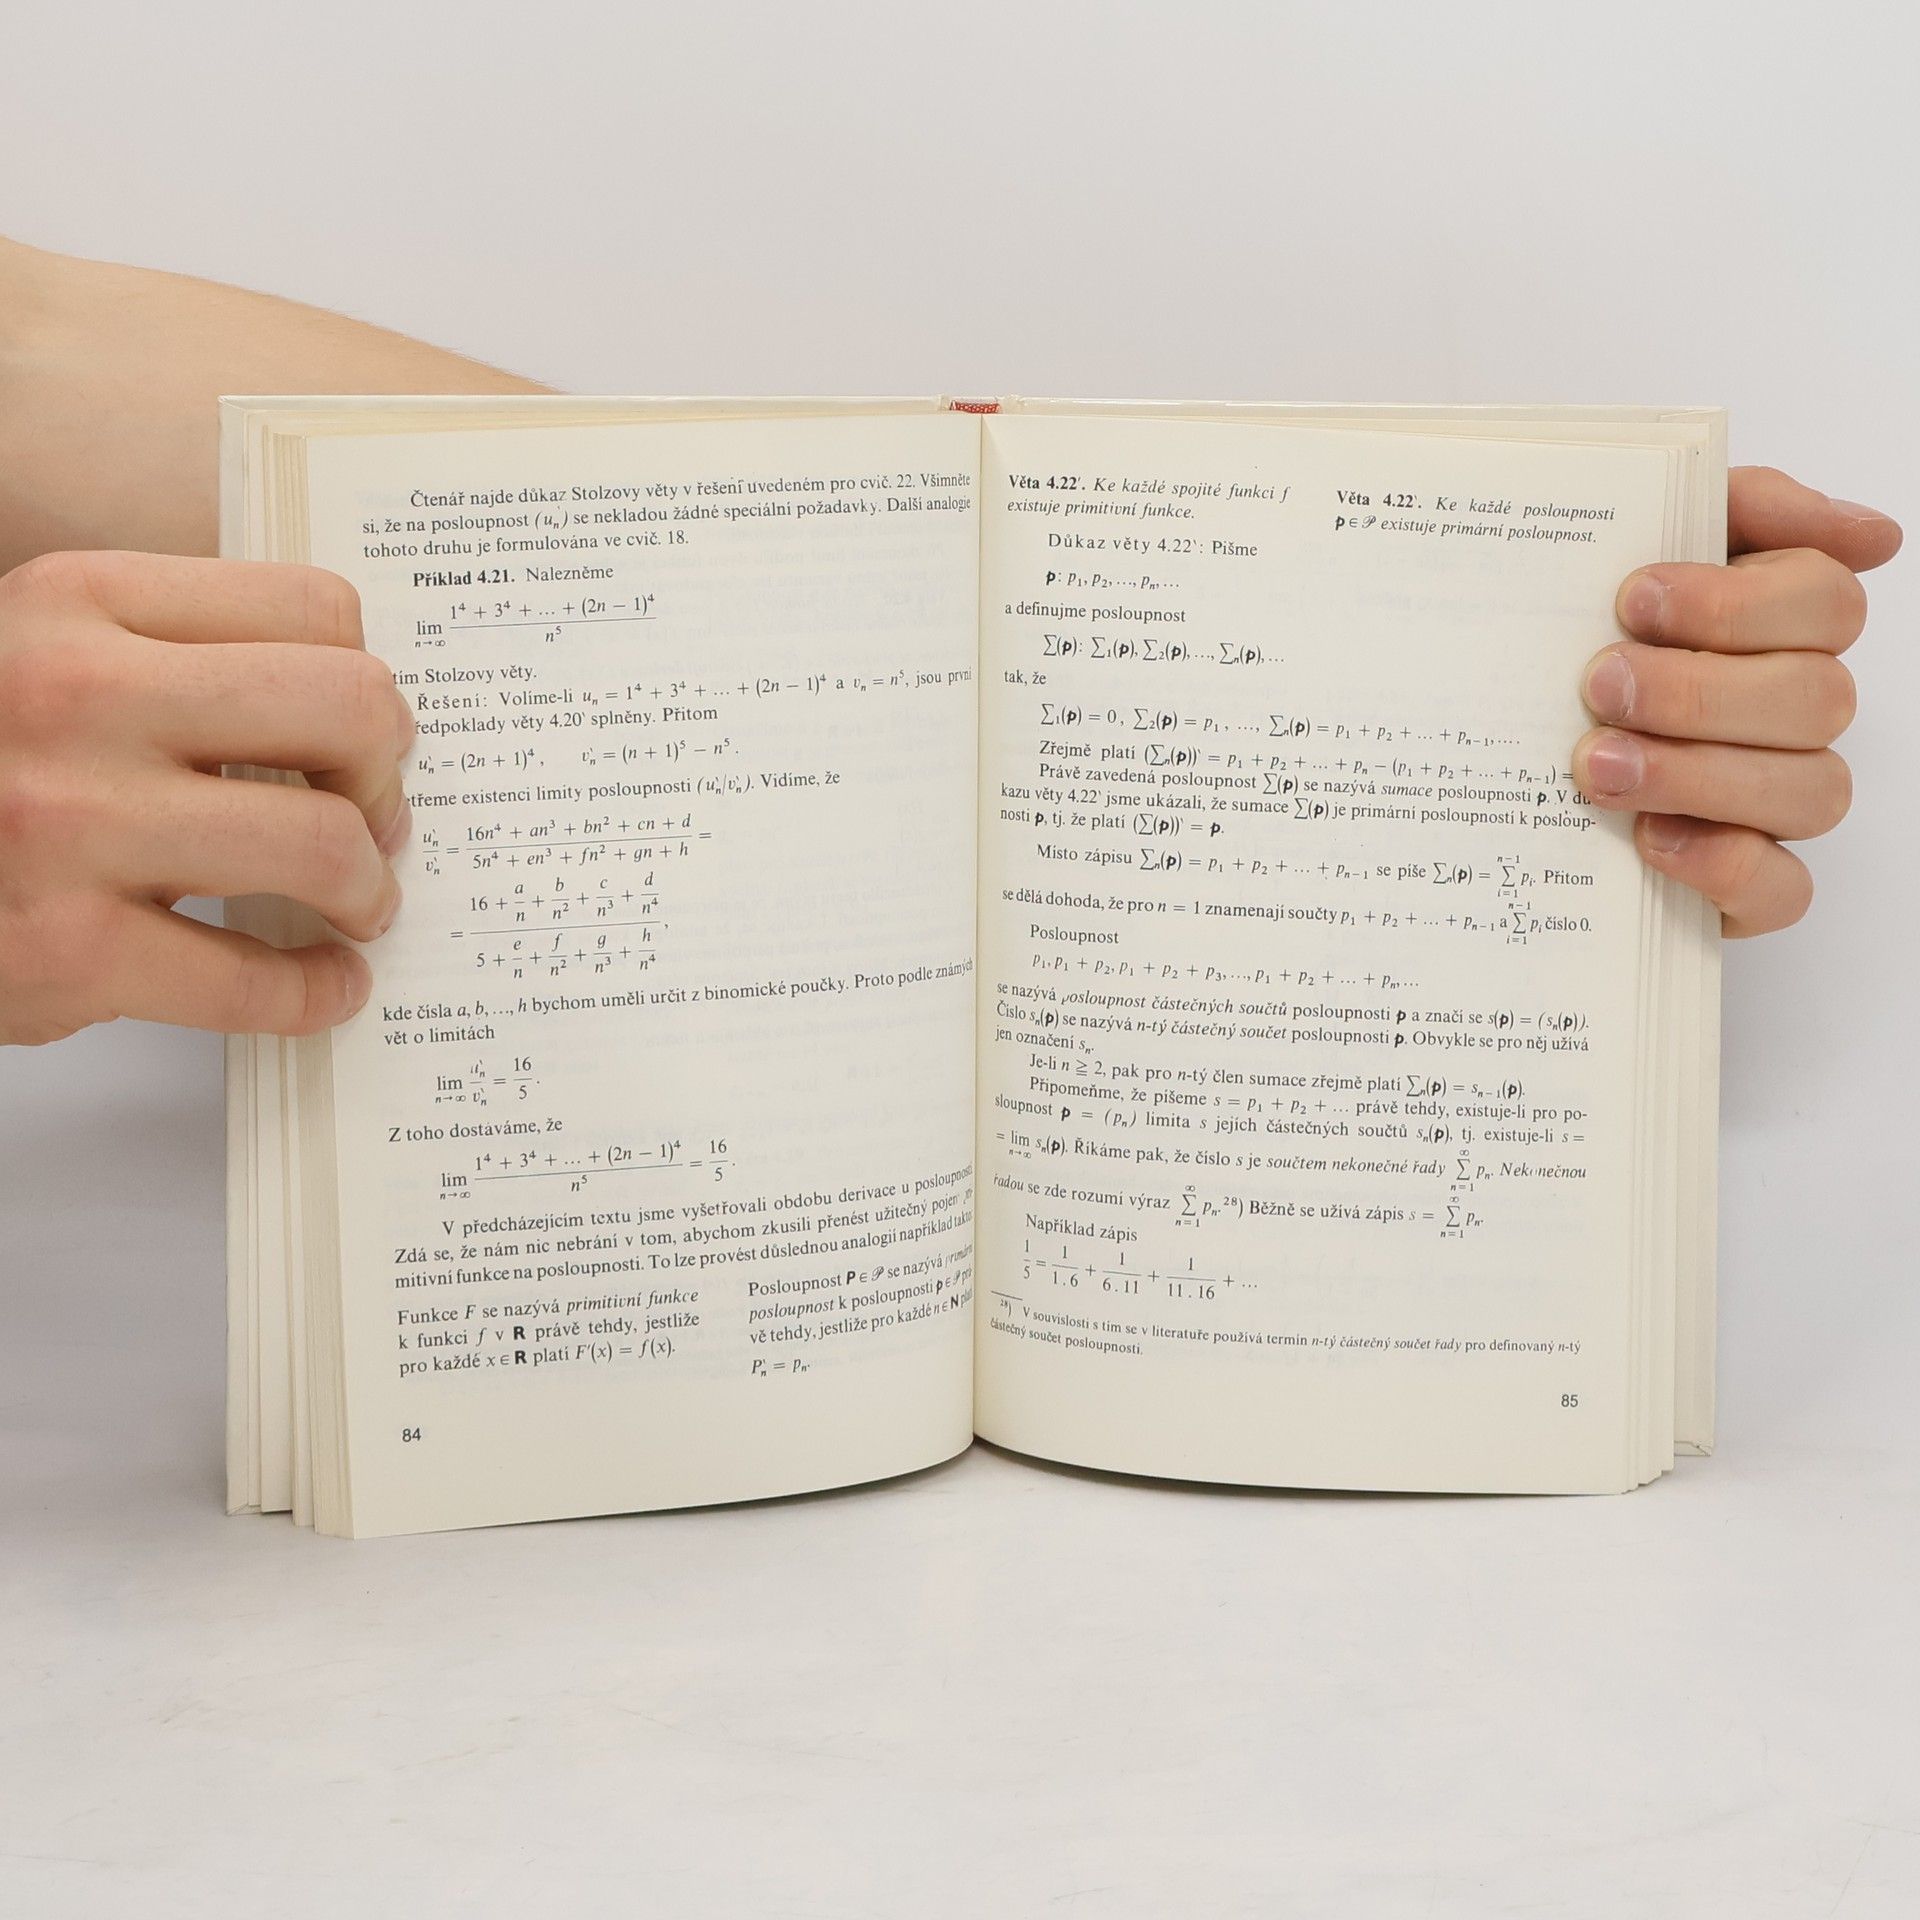 Čtenář najde důkaz Stolzovy věty v řešení uvedeném pro cvič. 22. Všimněte
si, že na posloupnost (uₙ) se nekladou žádné speciální požadavky. Další analogie
tohoto druhu je formulována ve cvič. 18.
Příklad 4.21. Nalezněme
lim n→∞ (1⁴ + 3⁴ + ... + (2n − 1)⁴) / n⁵
Stolzovy věty.
Řešení: Volíme-li uₙ = 1⁴ + 3⁴ + ... + (2n − 1)⁴ a vₙ = n⁵, jsou první
věty 4.20‵ splněny. Přitom
u‵ₙ = (2n + 1)⁴, v‵ₙ = (n + 1)⁵ − n⁵.
existenci limity posloupnosti (u‵ₙ/v‵ₙ). Vidíme, že
u‵ₙ/v‵ₙ = (16n⁴ + an³ + bn² + cn + d) / (5n⁴ + en³ + fn² + gn + h) =
= (16 + a/n + b/n² + c/n³ + d/n⁴) / (5 + e/n + f/n² + g/n³ + h/n⁴),
kde čísla a, b, ..., h bychom uměli určit z binomické poučky. Proto podle známých
vět o limitách
lim n→∞ u‵ₙ/v‵ₙ = 16/5.
Z toho dostáváme, že
lim n→∞ (1⁴ + 3⁴ + ... + (2n − 1)⁴) / n⁵ = 16/5.
V předcházejícím textu jsme vyšetřovali obdobu derivace u posloupností.
Zdá se, že nám nic nebrání v tom, abychom zkusili přenést užitečný pojem
mitivní funkce na posloupnosti. To lze provést důslednou analogií například takto:
Funkce F se nazývá primitivní funkce
k funkci f v R právě tehdy, jestliže
pro každé x ∈ R platí F′(x) = f(x).
Posloupnost P ∈ 𝒫 se nazývá primární
posloupnost k posloupnosti p ∈ 𝒫 prá-
vě tehdy, jestliže pro každé n ∈ N platí
P‵ₙ = pₙ.
84
Věta 4.22′. Ke každé spojité funkci f
existuje primitivní funkce.
Věta 4.22‵. Ke každé posloupnosti
p ∈ 𝒫 existuje primární posloupnost.
Důkaz věty 4.22‵: Pišme
p: p₁, p₂, ..., pₙ, ...
a definujme posloupnost
∑(p): ∑₁(p), ∑₂(p), ..., ∑ₙ(p), ...
tak, že
∑₁(p) = 0, ∑₂(p) = p₁, ..., ∑ₙ(p) = p₁ + p₂ + ... + pₙ₋₁, ....
Zřejmě platí (∑ₙ(p))‵ = p₁ + p₂ + ... + pₙ − (p₁ + p₂ + ... + pₙ₋₁) =
Právě zavedená posloupnost ∑(p) se nazývá sumace posloupnosti p. V dů-
kazu věty 4.22‵ jsme ukázali, že sumace ∑(p) je primární posloupností k posloup-
nosti p, tj. že platí (∑(p))‵ = p.
Místo zápisu ∑ₙ(p) = p₁ + p₂ + ... + pₙ₋₁ se píše ∑ₙ(p) = ∑_{i=1}^{n−1} pᵢ. Přitom
se dělá dohoda, že pro n = 1 znamenají součty p₁ + p₂ + ... + pₙ₋₁ a ∑_{i=1}^{n−1} pᵢ číslo 0.
Posloupnost
p₁, p₁ + p₂, p₁ + p₂ + p₃, ..., p₁ + p₂ + ... + pₙ, ...
se nazývá posloupnost částečných součtů posloupnosti p a značí se s(p) = (sₙ(p)).
Číslo sₙ(p) se nazývá n-tý částečný součet posloupnosti p. Obvykle se pro něj užívá
jen označení sₙ.
Je-li n ≧ 2, pak pro n-tý člen sumace zřejmě platí ∑ₙ(p) = sₙ₋₁(p).
Připomeňme, že píšeme s = p₁ + p₂ + ... právě tehdy, existuje-li pro po-
sloupnost p = (pₙ) limita s jejích částečných součtů sₙ(p), tj. existuje-li s =
= lim n→∞ sₙ(p). Říkáme pak, že číslo s je součtem nekonečné řady ∑_{n=1}^{∞} pₙ. Nekonečnou
řadou se zde rozumí výraz ∑_{n=1}^{∞} pₙ.²⁸) Běžně se užívá zápis s = ∑_{n=1}^{∞} pₙ.
Například zápis
1/5 = 1/(1.6) + 1/(6.11) + 1/(11.16) + ...
²⁸) V souvislosti s tím se v literatuře používá termín n-tý částečný součet řady pro definovaný n-tý
částečný součet posloupnosti.
85